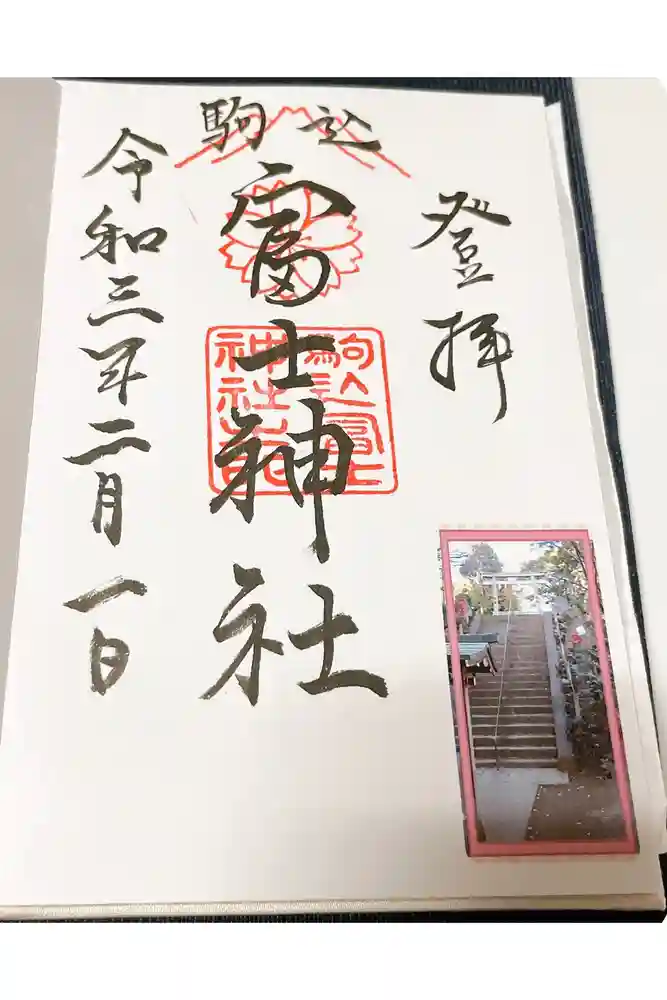 登拝
駒込
富士神社
駒込富士
神社之印
令和三年二月一日